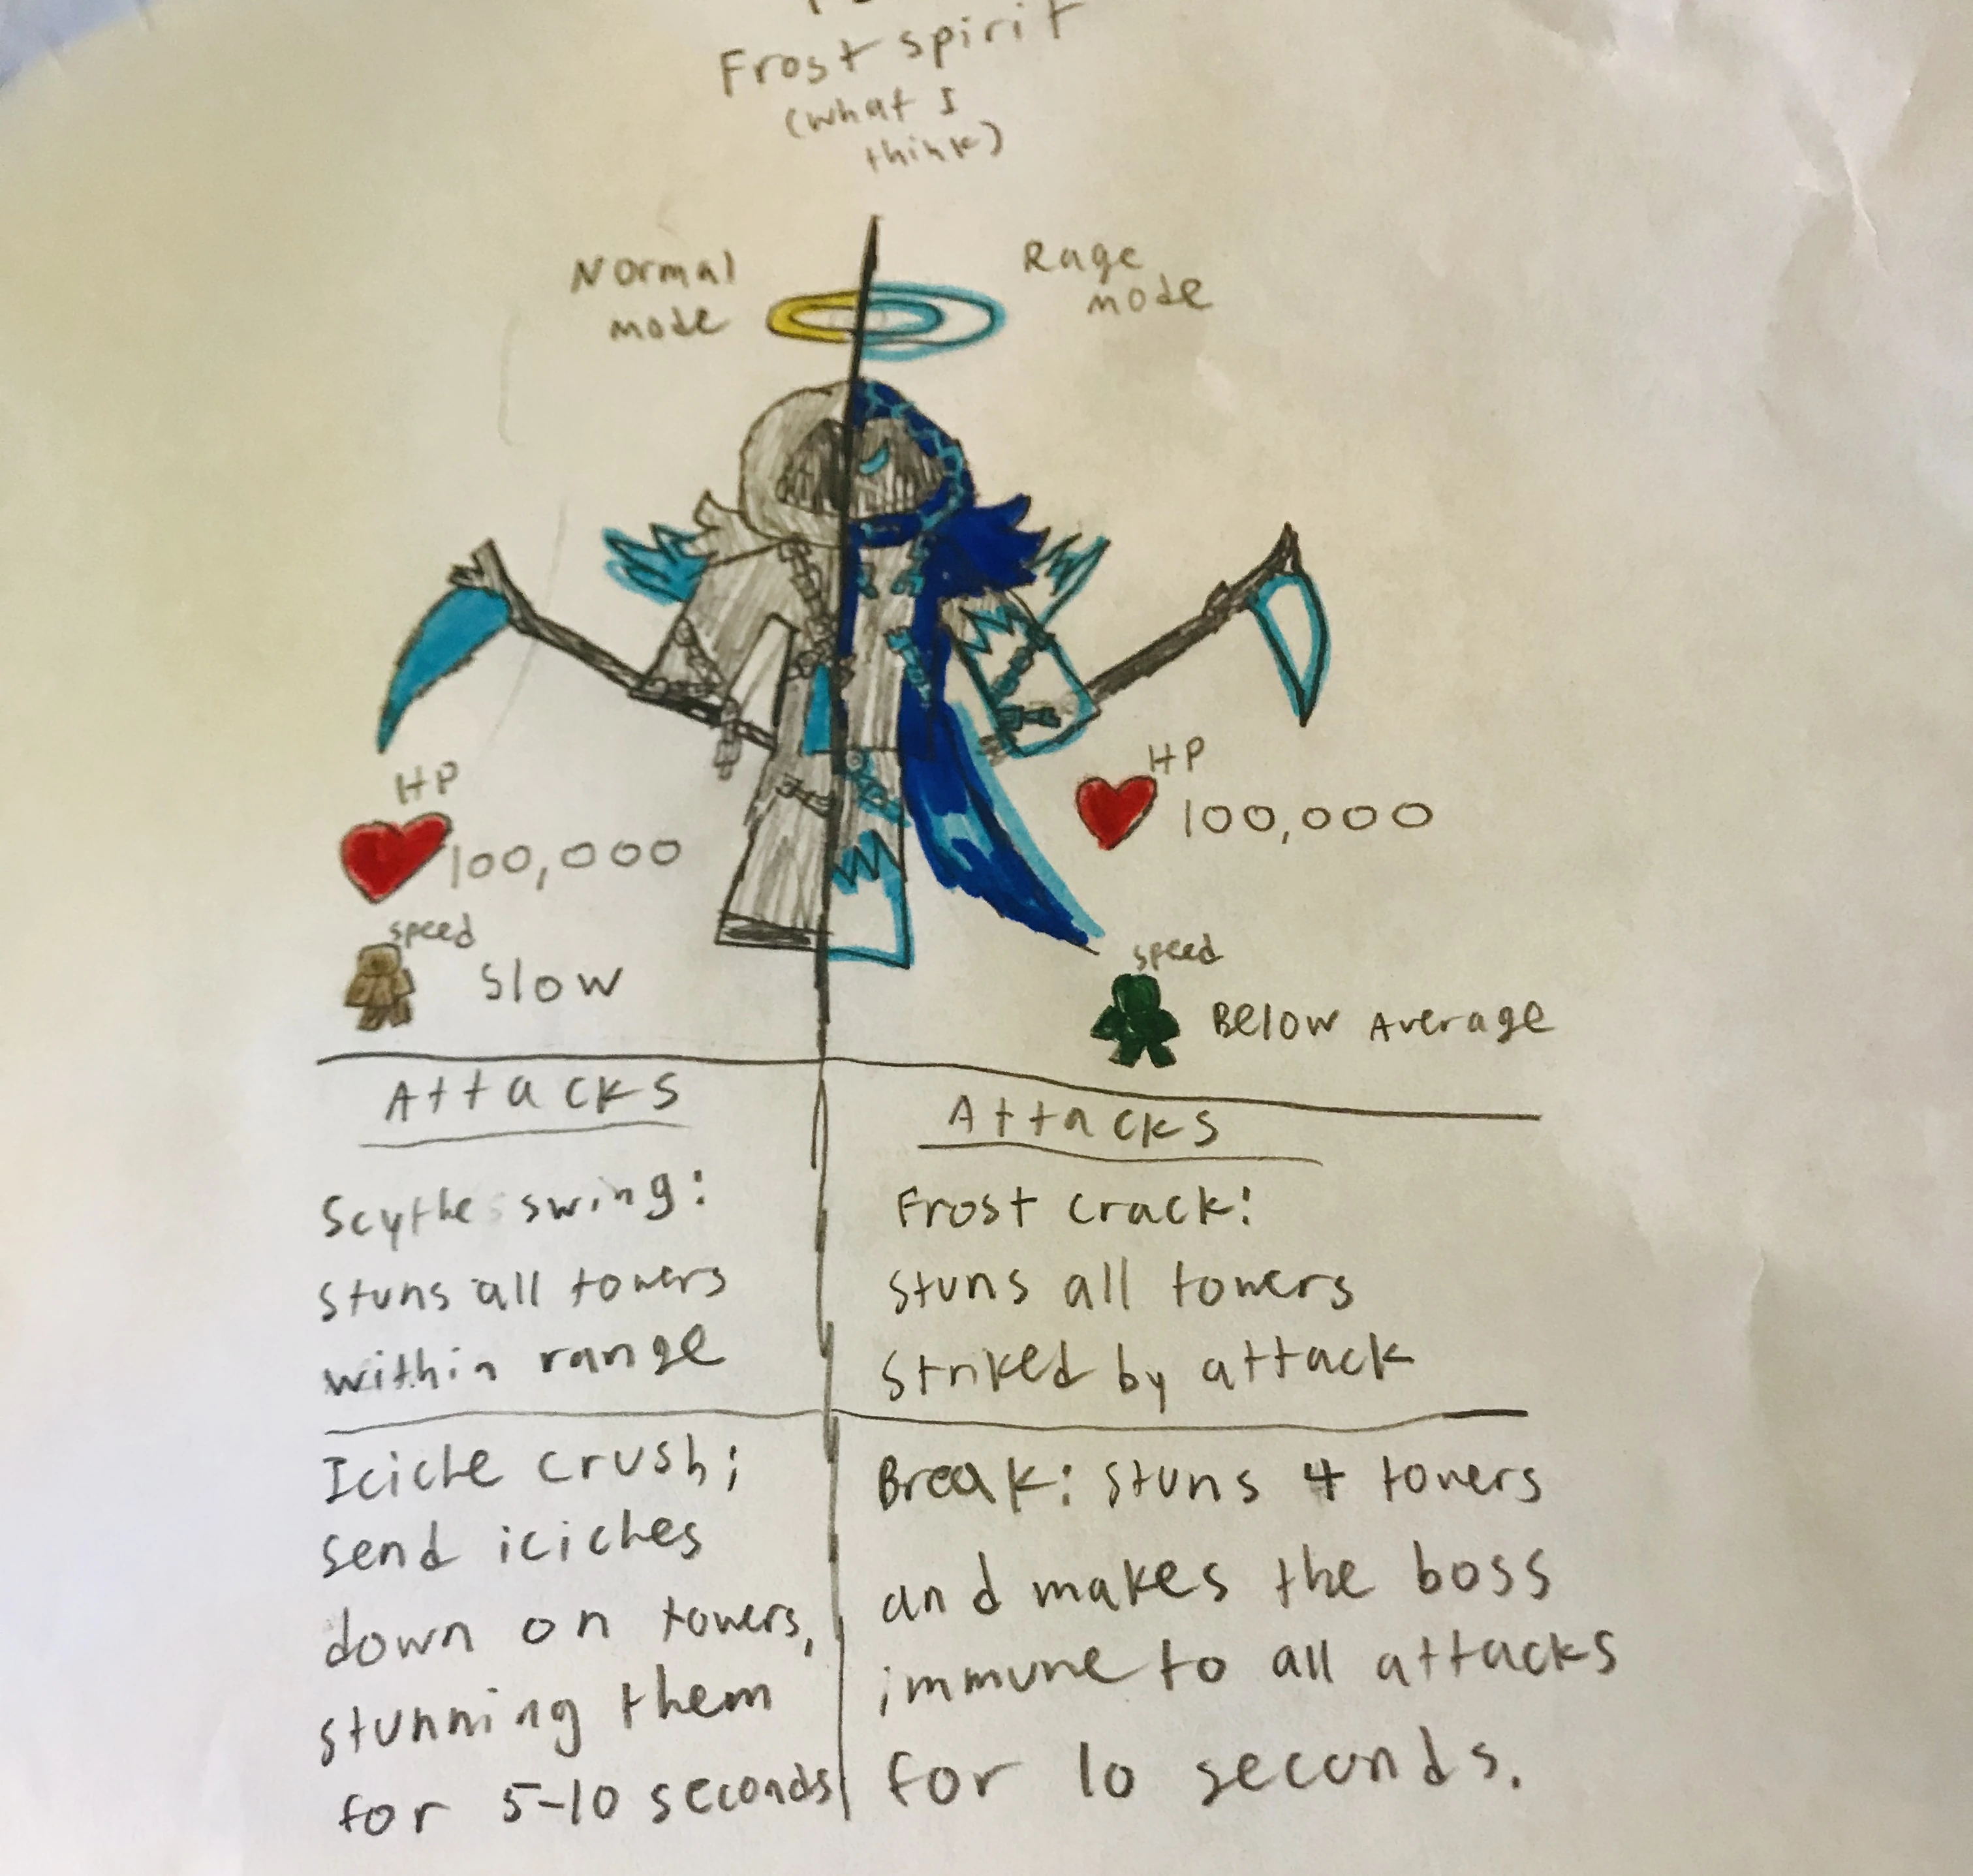 Frost spirit
(what I
think)
Normal
mode
Rage
mode
HP
100,000
speed
slow
HP
100,000
speed
Below Average
Attacks
Scythe swing:
stuns all towers
within range
Icicle crush;
send icicles
down on towers,
stunning them
for 5-10 seconds
Attacks
Frost crack:
stuns all towers
striked by attack
Break: stuns 4 towers
and makes the boss
immune to all attacks
for 10 seconds.